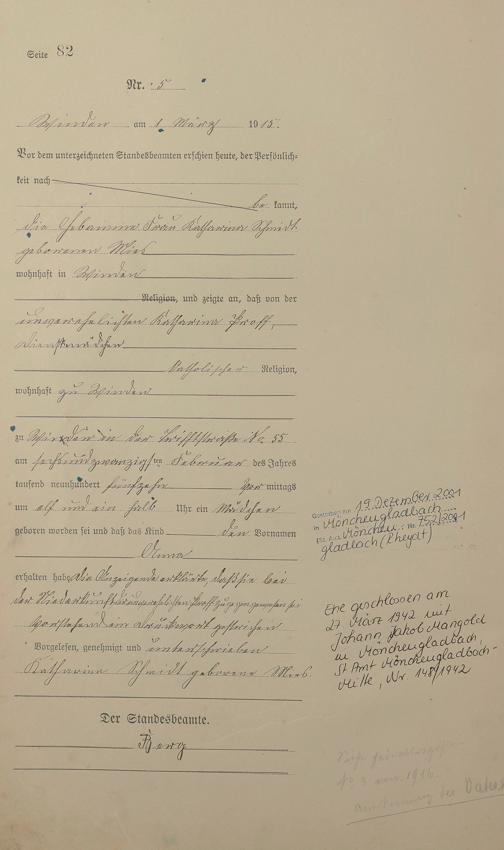 Seite 82
Nr. 5
Winden am 1 März 1915.
Vor dem unterzeichneten Standesbeamten erschien heute, der Persönlich-
keit nach
be kannt,
die Hebamme Frau Katharina Schmidt
geborenen Mies
wohnhaft in Winden
Religion, und zeigte an, daß von der
unverehelichten Katharina Proff,
Dienstmädchen
katholischer Religion,
wohnhaft zu Winden
zu Winden in der Triftstraße No. 55
am sechsundzwanzigsten Februar des Jahres
tausend neunhundert fünfzehn Vor mittags
um elf und ein halb Uhr ein Mädchen
geboren worden sei und daß das Kind den Vornamen
Anna
erhalten habe. Die Anzeigende erklärte, daß sie bei
der Niederkunft der unverehelichten Proff zugegen gewesen sei
Vorstehend ein Druckwort gestrichen
Vorgelesen, genehmigt und unterschrieben
Katharina Schmidt geborene Mies.
Der Standesbeamte.
Berg
Gestorben am 19. Dezember 2001
in Mönchengladbach
St. Amt Mönchen- Nr.
gladbach (Rheydt)
Ehe geschlossen am
27 März 1942 mit
Johann Jakob Mangold
in Mönchengladbach,
St Amt Mönchengladbach-
Mitte, Nr. 148/1942
Siehe
No 3 von 1916.
Anerkennung der Vater